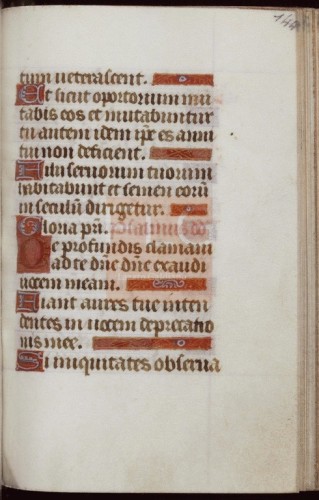 144
tum veterascent.
Et sicut opertorium mu
tabis eos et mutabuntur
tu autem idem ipse es anni
tui non deficient.
Filii servorum tuorum
habitabunt et semen eorum
in seculum dirigetur.
Gloria pri. Psalmus
De profundis clamavi
ad te dne dne exaudi
vocem meam.
Fiant aures tue inten
dentes in vocem deprecatio
nis mee.
Si iniquitates observa